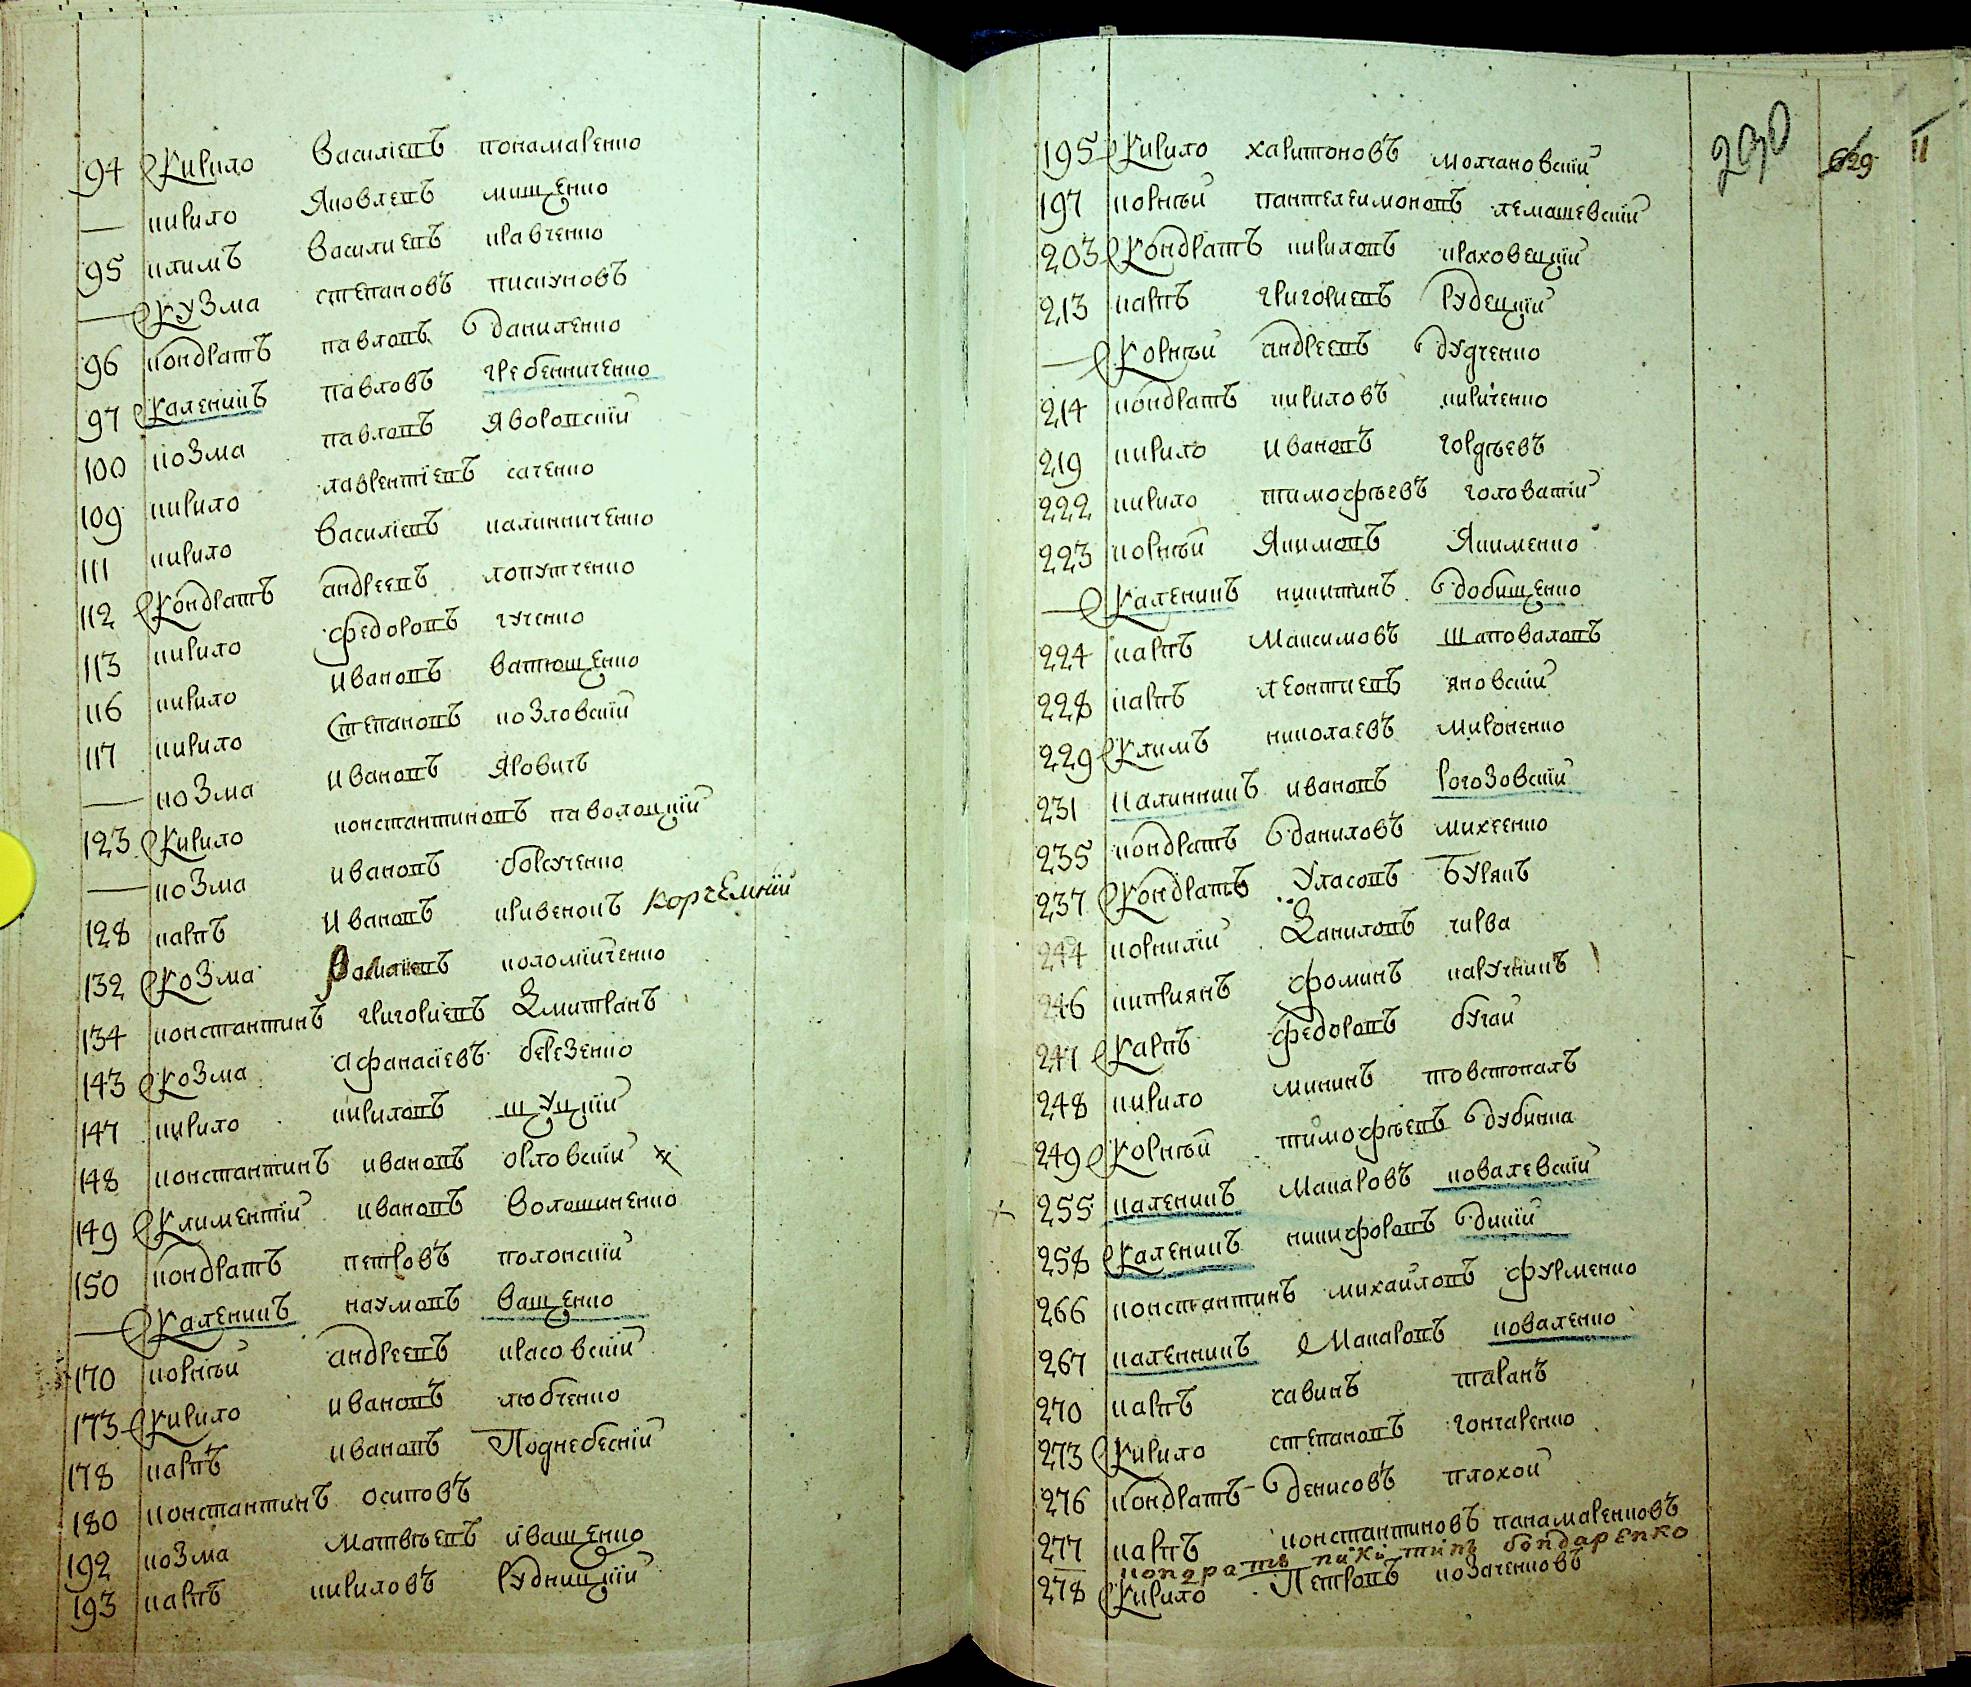 94 Кирило Василіевъ понамаренко
— кирило Яковлевъ мищенко
95 климъ Василиевъ кравченко
— Кузма степановъ пискуновъ
96 кондратъ павловъ даниленко
97 Каленикъ павловъ гребенниченко
100 козма павловъ Яворовскій
109 кирило лаврентіевъ саченко
111 кирило Василіевъ калинниченко
112 Кондратъ андреевъ лопутченко
113 кирило федоровъ гученко
116 кирило Ивановъ ватющенко
117 кирило Степановъ козловскій
— козма Ивановъ Яровичъ
123 Кирило константиновъ паволоцкій
— козма Ивановъ борсученко
128 карпъ Ивановъ кривенокъ корчемній
132 Козма коломійченко
134 константинъ григориевъ Змитранъ
143 Козма Афанасіевъ березенко
147 кирило кириловъ щуцкій
148 константинъ ивановъ орловскій
149 Климентій ивановъ Волошиненко
150 кондратъ петровъ полонскій
— Каленикъ наумовъ Ващенко
170 корнѣй андреевъ красовскій
173 Кирило ивановъ любченко
178 карпъ ивановъ Поднебесній
180 константинъ осиповъ
192 козма Матвѣевъ иващенко
193 карпъ кириловъ Рудницкій
230 629 11
195 Кирило харитоновъ молчановскій
197 корнѣй пантелеимоновъ лемашевскій
203 Кондратъ кириловъ краховецкій
213 карпъ григориевъ Рудецкій
— Корнѣй андреевъ дудченко
214 кондратъ кириловъ кириченко
219 кирило Ивановъ гордѣевъ
222 кирило тимофѣевъ головатій
223 корнѣй Якимовъ Якименко
— Каленикъ никитинъ добищенко
224 карпъ Максимовъ шаповаловъ
228 карпъ леонтиевъ яновскій
229 Климъ николаевъ мироненко
231 Калинникъ ивановъ Рогозовскій
235 кондратъ даниловъ михеенко
237 Кондратъ Уласовъ Бурякъ
244 корнилій Даниловъ чирва
246 киприянъ фоминъ карученикъ
247 Карпъ федоровъ бугай
248 кирило мининъ товстопалъ
249 Корнѣй тимофѣевъ дубинка
255 каленикъ Макаровъ ковалевскій
258 Каленикъ никифоровъ дикій
266 константинъ михайловъ фурменко
267 каленникъ Макаровъ коваленко
270 карпъ савинъ таранъ
273 Кирило степановъ гончаренко
276 кондратъ денисовъ плохой
277 карпъ константиновъ панамаренковъ
кондратъ никитинъ бондаренко
278 Кирило Петровъ козаченковъ